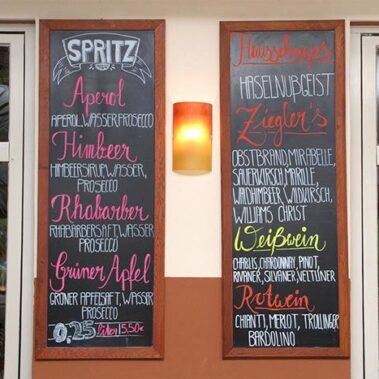 SPRITZ
Aperol
APEROL, WASSER, PROSECCO
Himbeer
HIMBEERSIRUP, WASSER,
PROSECCO
Rhabarber
RHABARBERSAFT, WASSER
PROSECCO
Grüner Apfel
GRÜNER APFELSAFT, WASSER
PROSECCO
0,25 Liter 5,50€
Hausschnaps
HASELNUßGEIST
Ziegler's
OBSTBRAND, MIRABELLE,
SAUERKIRSCH, MARILLE,
WALDHIMBEER, WILDKIRSCH,
WILLIAMS CHRIST
Weißwein
CHABLIS, CHARDONNAY, PINOT,
RIVANER, SILVANER, VELTLINER
Rotwein
CHIANTI, MERLOT, TROLLINGER
BARDOLINO